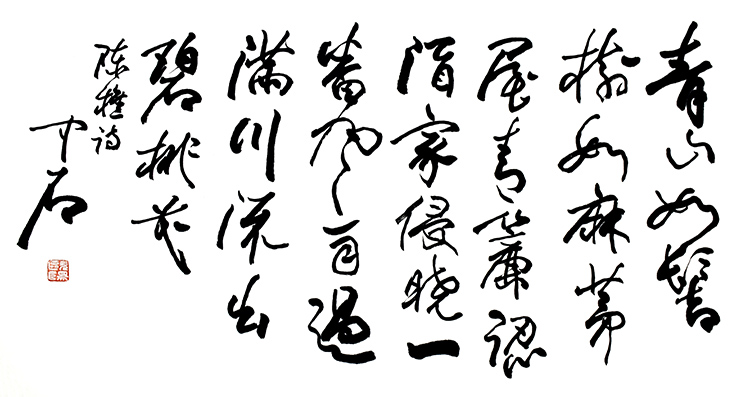 青山如髻
樹如麻茅
屋青簾認
酒家侵晓一
番風雨過
滿川流出
碧桃花
陈樵诗
中石